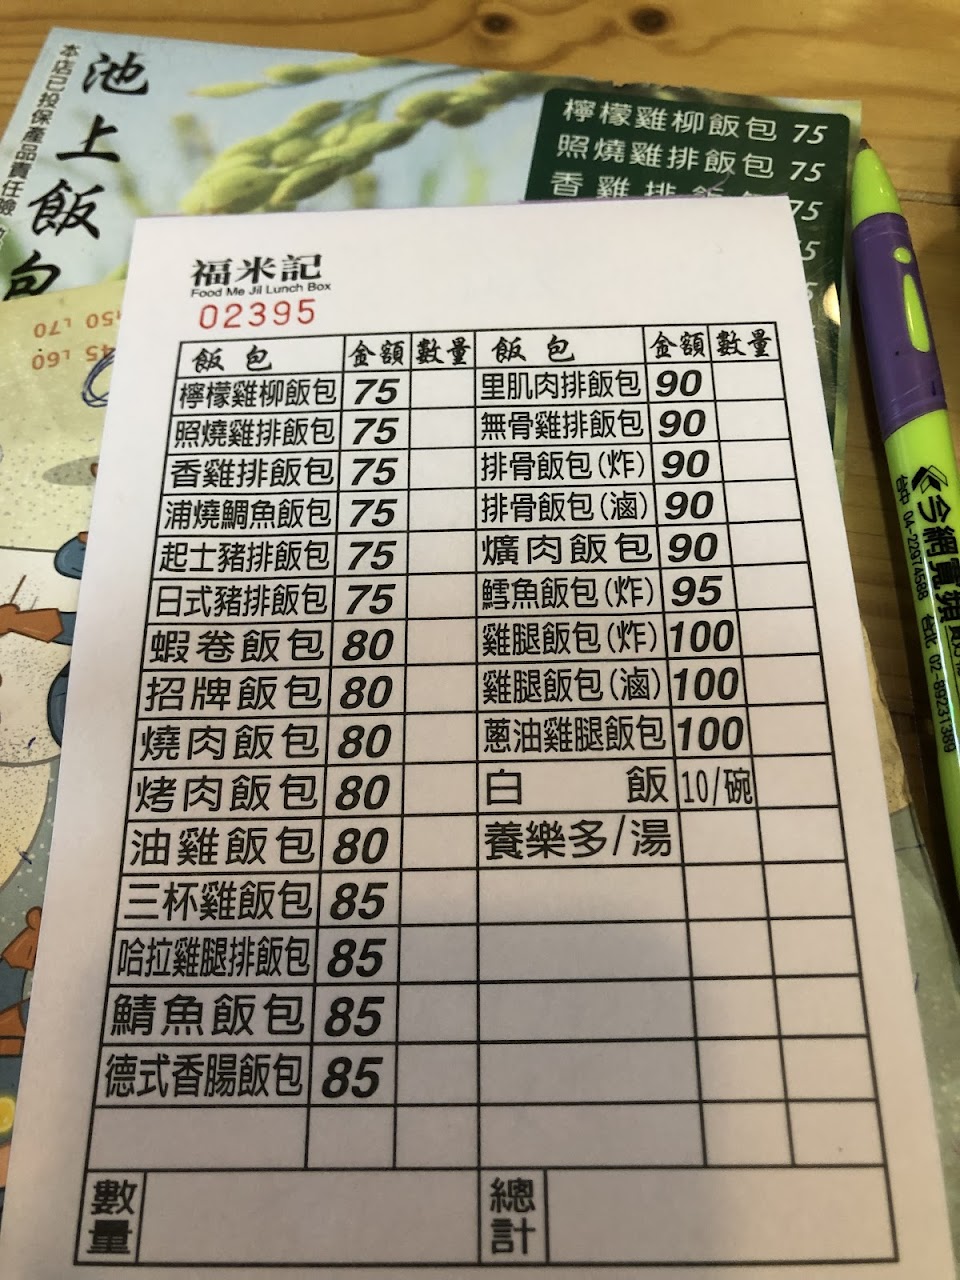 池上飯包
本店已投保產品責任險
檸檬雞柳飯包 75
照燒雞排飯包 75
香雞排飯包 75
福米記
Food Me Jil Lunch Box
02395
飯包 金額 數量 飯包 金額 數量
檸檬雞柳飯包 75 里肌肉排飯包 90
照燒雞排飯包 75 無骨雞排飯包 90
香雞排飯包 75 排骨飯包(炸) 90
浦燒鯛魚飯包 75 排骨飯包(滷) 90
起士豬排飯包 75 爌肉飯包 90
日式豬排飯包 75 鱈魚飯包(炸) 95
蝦卷飯包 80 雞腿飯包(炸) 100
招牌飯包 80 雞腿飯包(滷) 100
燒肉飯包 80 蔥油雞腿飯包 100
烤肉飯包 80 白飯 10/碗
油雞飯包 80 養樂多/湯
三杯雞飯包 85
哈拉雞腿排飯包 85
鯖魚飯包 85
德式香腸飯包 85
數量 總計
今網寬頻
台中 04-22974588 台北 02-89231389